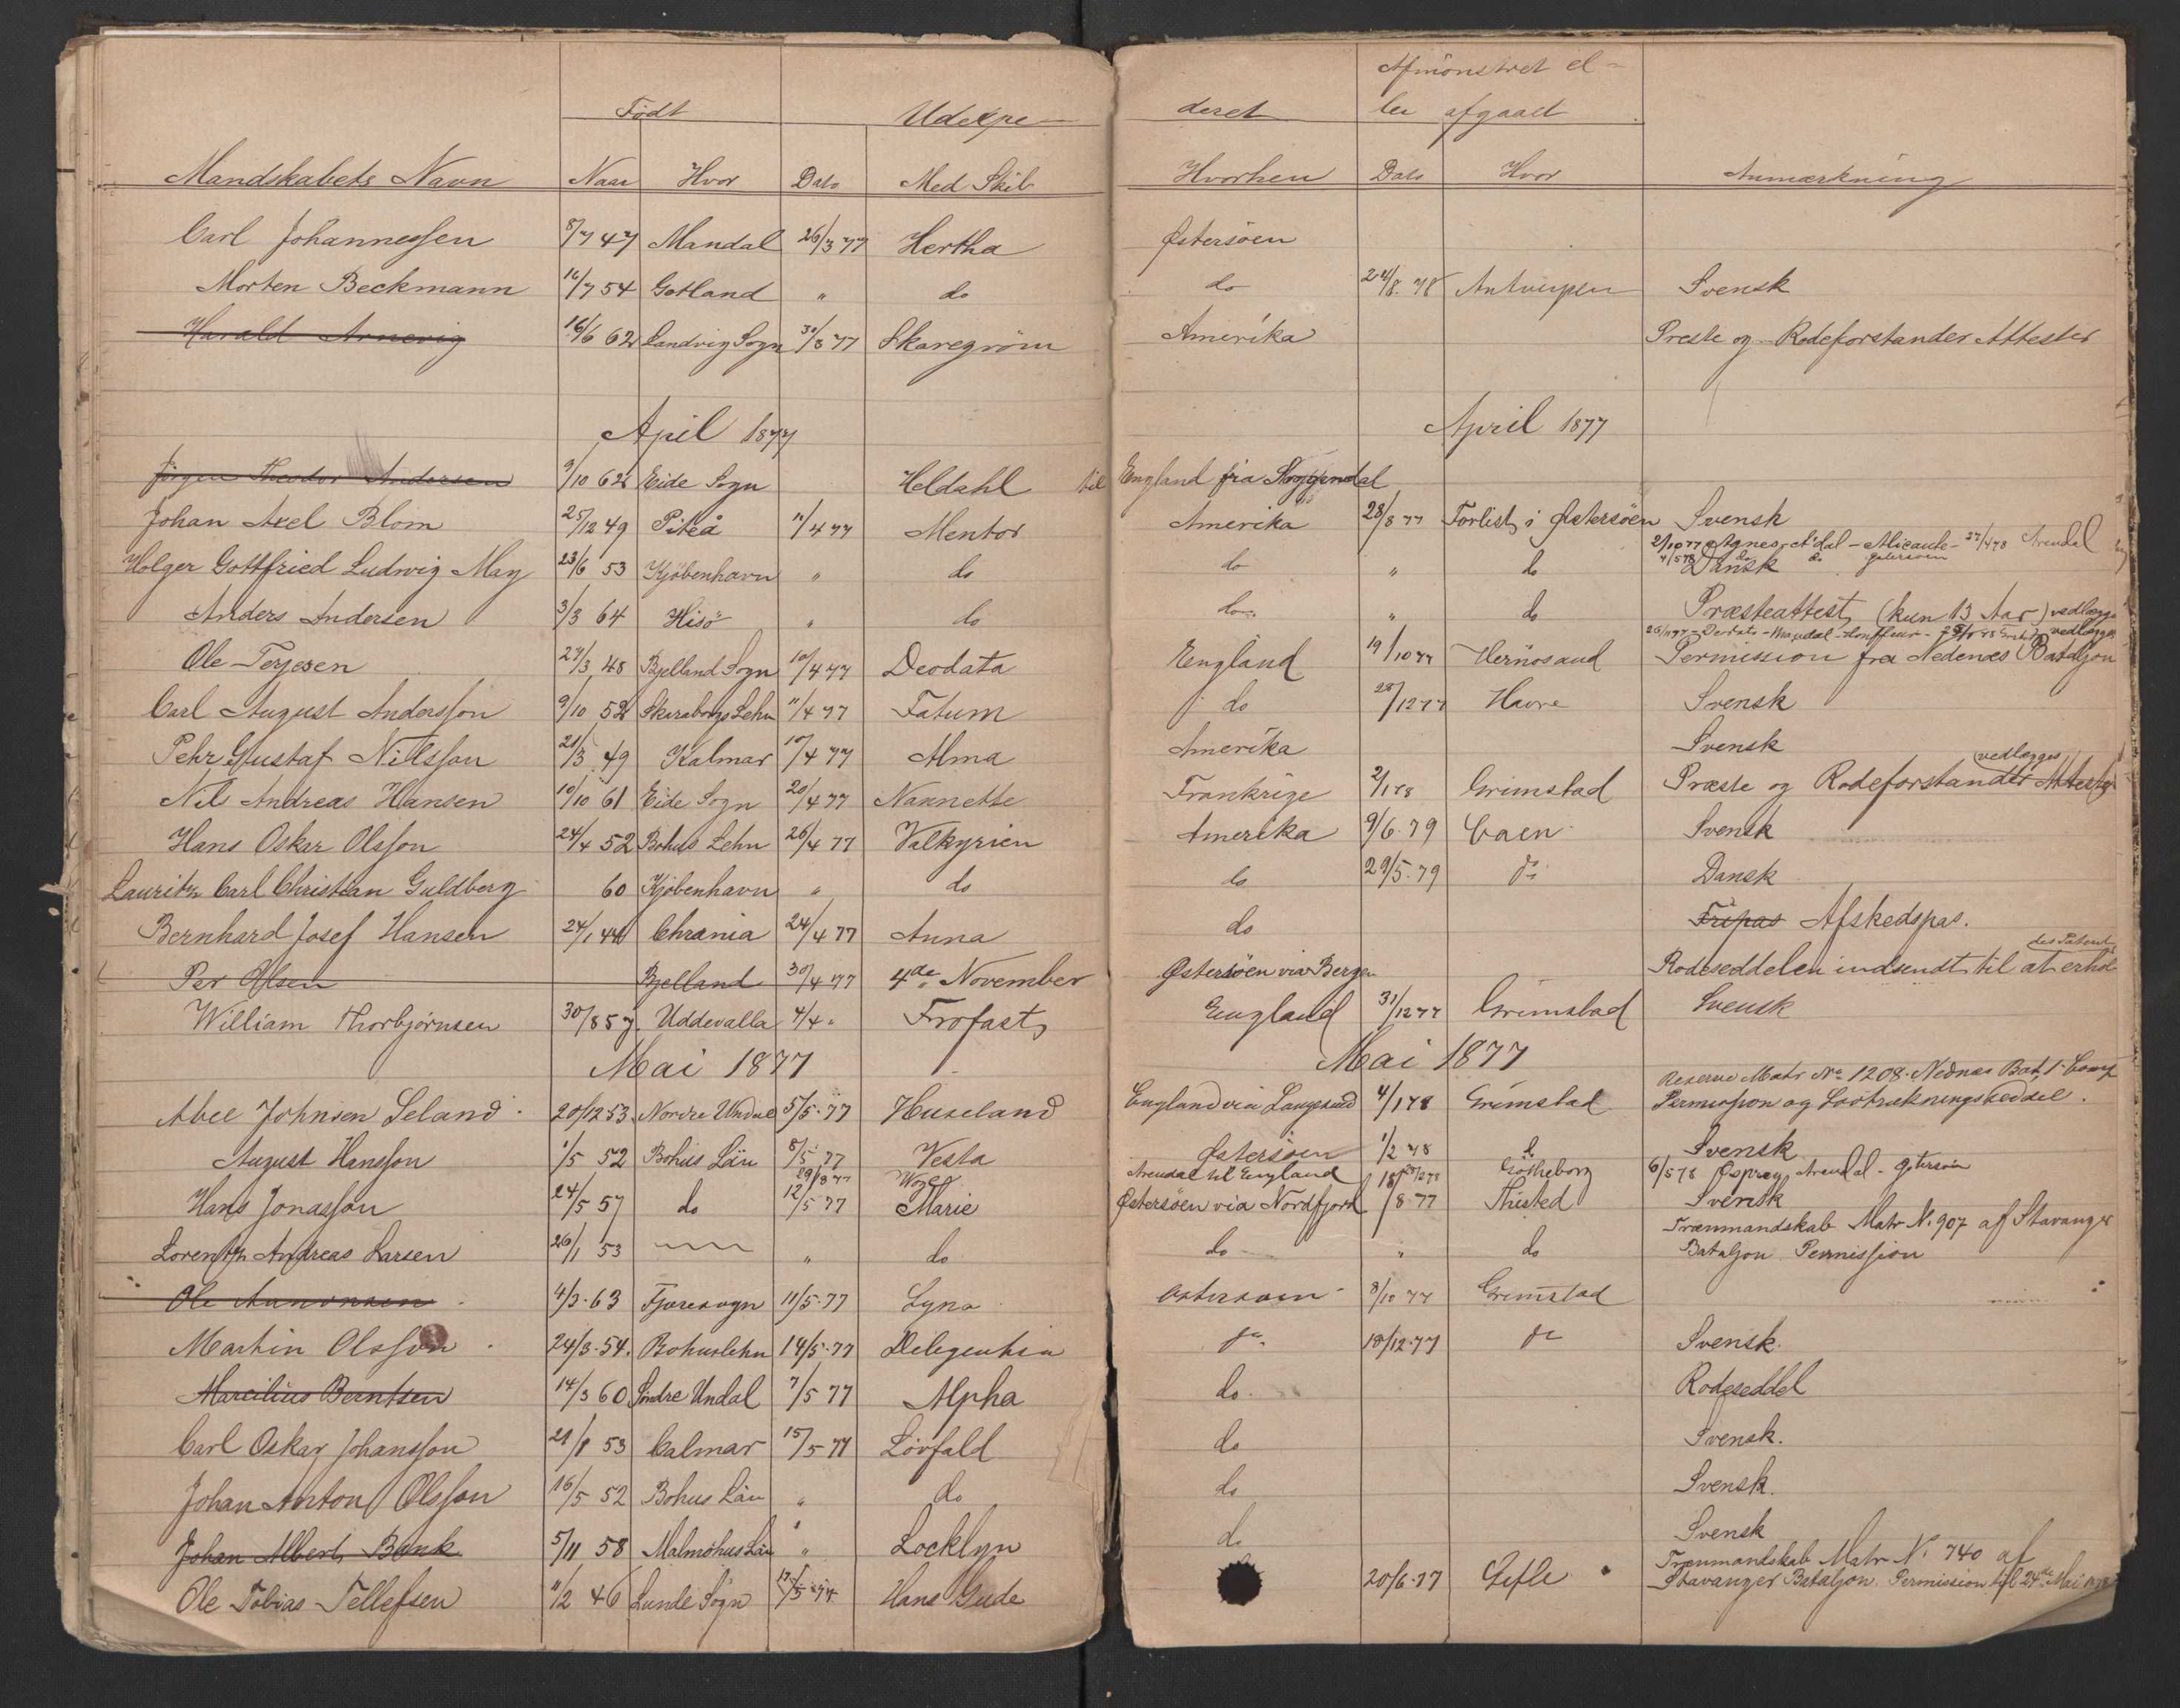 Født Udexpe- deret Afmønstret el- ler afgaaet
Mandskabets Navn Naar Hvor Dato Med Skib Hvorhen Dato Hvor Anmærkning
Carl Johannessen 8/7 47 Mandal 26/3 77 Hertha Østersøen
Morten Beckmann 16/7 54 Gotland " do do 24/8. 78 Antwerpen Svensk
Harald Arnevig 16/6 62 Landvig Sogn 30/3 77 Skaregrøm Amerika Preste og Rodeforstander Attester
April 1877 April 1877
Jørgen Theodor Andersen 9/10 62 Eide Sogn Heldahl til England fra
Johan Axel Blom 25/12 49 Piteå 11/4 77 Mentor Amerika 28/8 77 Forlist i Østersøen Svensk
2/10 77 Agnes - A'dal - Alicante - 27/4 78 Arendal
Holger Gottfried Ludvig May 23/6 53 Kjøbenhavn " do do " do 4/5 78 do do Østersøen Dansk
Anders Andersen 3/3 64 Hisø " do do " do Præsteattest (kun 13 Aar) vedlægges
Ole Terjesen 27/3 48 Bjelland Sogn 10/4 77 Deodata England 19/10 77 Hernøsand Permission fra Nedenæs Bataljon
Carl August Andersson 9/10 52 Skaraborgs Lehn 11/4 77 Fatum do 28/12 77 Havre Svensk
Pehr Gustaf Nilsson 21/3 49 Kalmar 10/4 77 Alma Amerika Svensk
vedlægges
Nil Andreas Hansen 10/10 61 Eide Sogn 20/4 77 Nannette Frankrige 2/1 78 Grimstad Præste og Rodeforstander Attester
Hans Oskar Olsson 24/4 52 Bohus Lehn 26/4 77 Valkyrien Amerika 9/6. 79 Caen Svensk
Lauritz Carl Christian Guldberg 60 Kjøbenhavn " do do 29/5. 79 do Dansk
Bernhard Josef Hansen 24/1 44 Chrania 24/4 77 Anna do Fripas Afskedspas.
Per Olsen Bjelland 30/4 77 4de November Østersøen via Bergen Rodeseddelen indsendt til at erhol
William Thorbjørnsen 30/8 57. Uddevalla 4/4 " Trofast England 31/12 77 Grimstad Svensk
Mai 1877 Mai 1877
Reserve Matr No 1208. Nednæs Bat, 1 Comp
Abel Johnsen Leland 20/12 53 Nordre Undal 5/5. 77 Huseland England via Langesund 4/1 78 Grimstad Permission og Lodtrækningsseddel.
August Hansson 1/5 52 Bohus Län 8/5 77 Vesta Østersøen 1/2 78 do Svensk
29/8 77 Arendal til England Götheborg 6/5 78 Osprey, Arendal - Østersøen
Hans Jonasson 24/5 57 do 12/5 77 Marie Østersøen via Nordfjord 18/8 77 Thisted Svensk
Trænmandskab Matr N. 907 af Stavanger
Lorentz Andreas Larsen 26/1 53 " do do " do Bataljon Permission
Ole 4/3. 63 Fjæresogn 11/5. 77 Lyna Østersøen 8/10 77 Grimstad
Martin Olsson 24/3. 54. Bohuslehn 14/5. 77 Deligentia do 18/12. 77 do Svensk.
Marcilius Berntsen 14/3 60 Søndre Undal 7/5 77 Alpha do. Rodeseddel
Carl Oskar Johansson 21/8 53 Calmar 15/5 77 Løvfald do Svensk.
Johan Anton Olsson 16/5 52 Bohus Län " do do Svensk.
Johan Albert Bank 5/11 58 Malmöhus Län " Locklyn do Svensk
Trænmandskab Matr N. 740 af
Ole Tobias Tellefsen 11/2 46 Lunde Sogn Hans Gude 20/6. 77 Gefle Stavanger Bataljon. Permission til 24de Mai